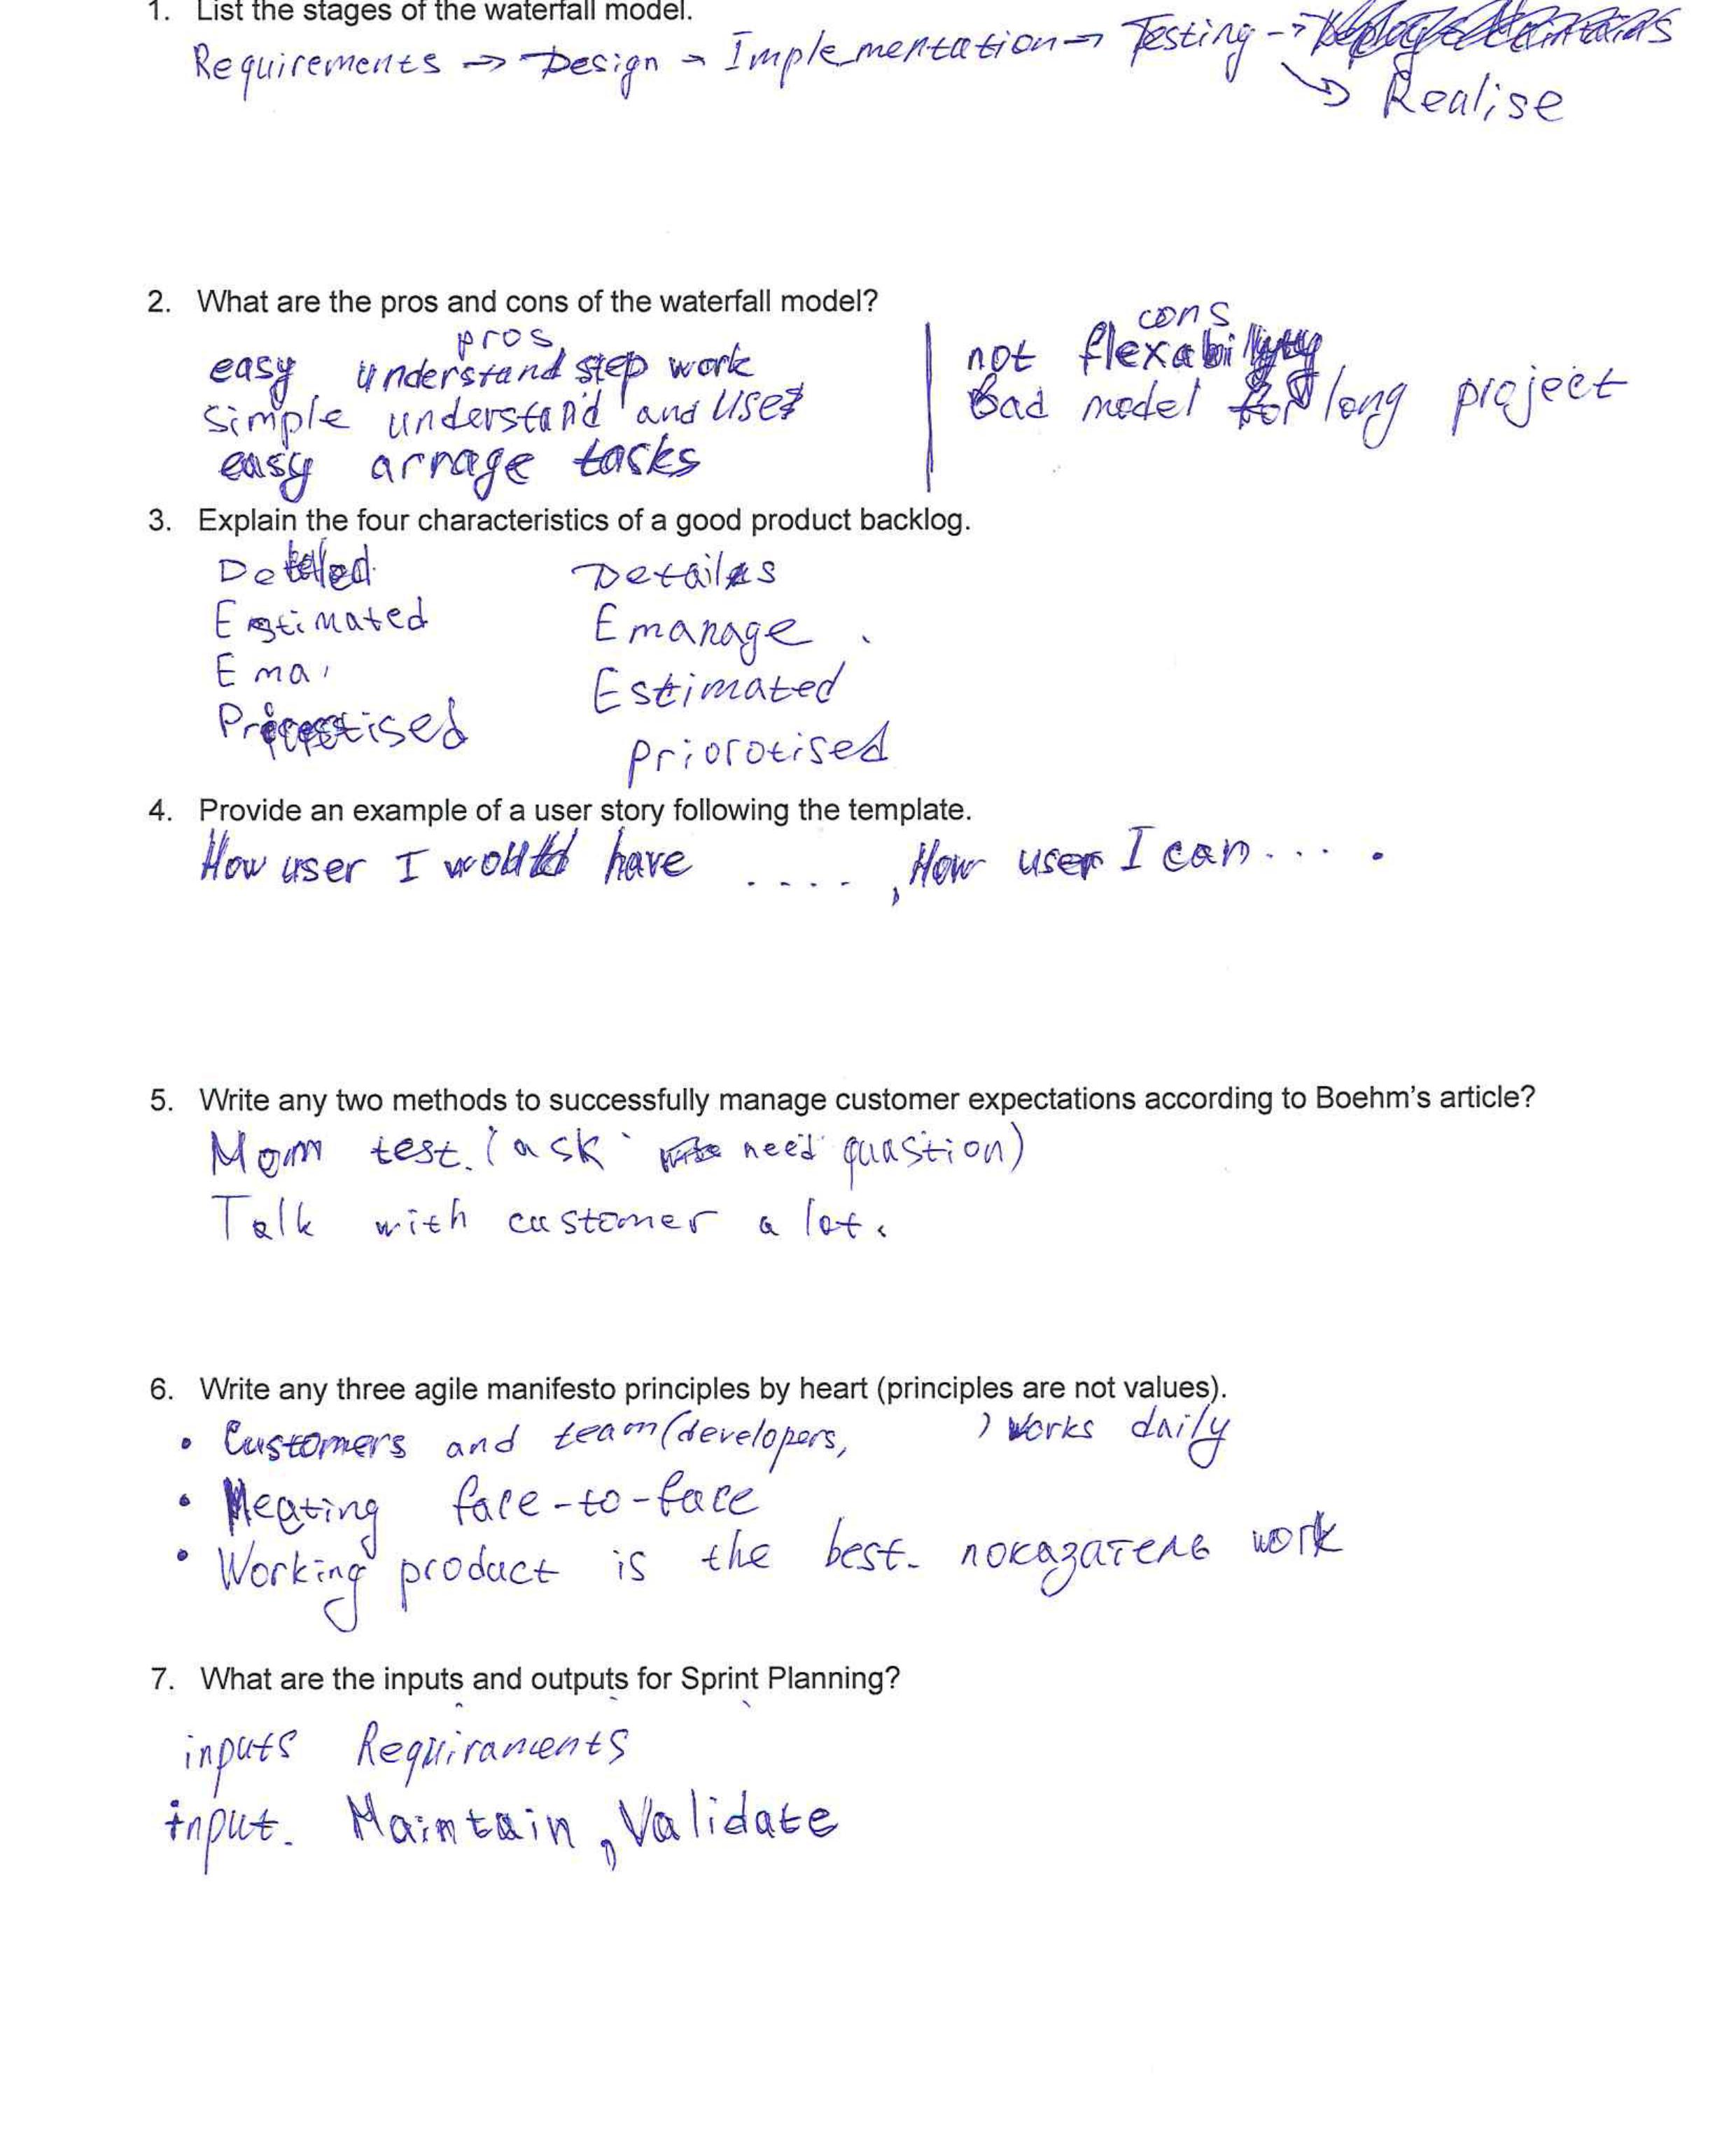 1. List the stages of the waterfall model.
Requirements → Design → Implementation → Testing →
→ Realise
2. What are the pros and cons of the waterfall model?
pros
easy understand step work
simple understand and use
easy arrage tasks
cons
not flexability
Bad model for long project
3. Explain the four characteristics of a good product backlog.
Detailed
Estimated
Ema
Prioritised
Details
Emanage
Estimated
Priorotised
4. Provide an example of a user story following the template.
How user I would have ...., How user I can....
5. Write any two methods to successfully manage customer expectations according to Boehm's article?
Mom test. (ask need quastion)
Talk with customer a lot.
6. Write any three agile manifesto principles by heart (principles are not values).
• Customers and team (developers, ) works daily
• Meating face-to-face
• Working product is the best. показатель work
7. What are the inputs and outputs for Sprint Planning?
inputs Requiraments
input. Maintain, Validate